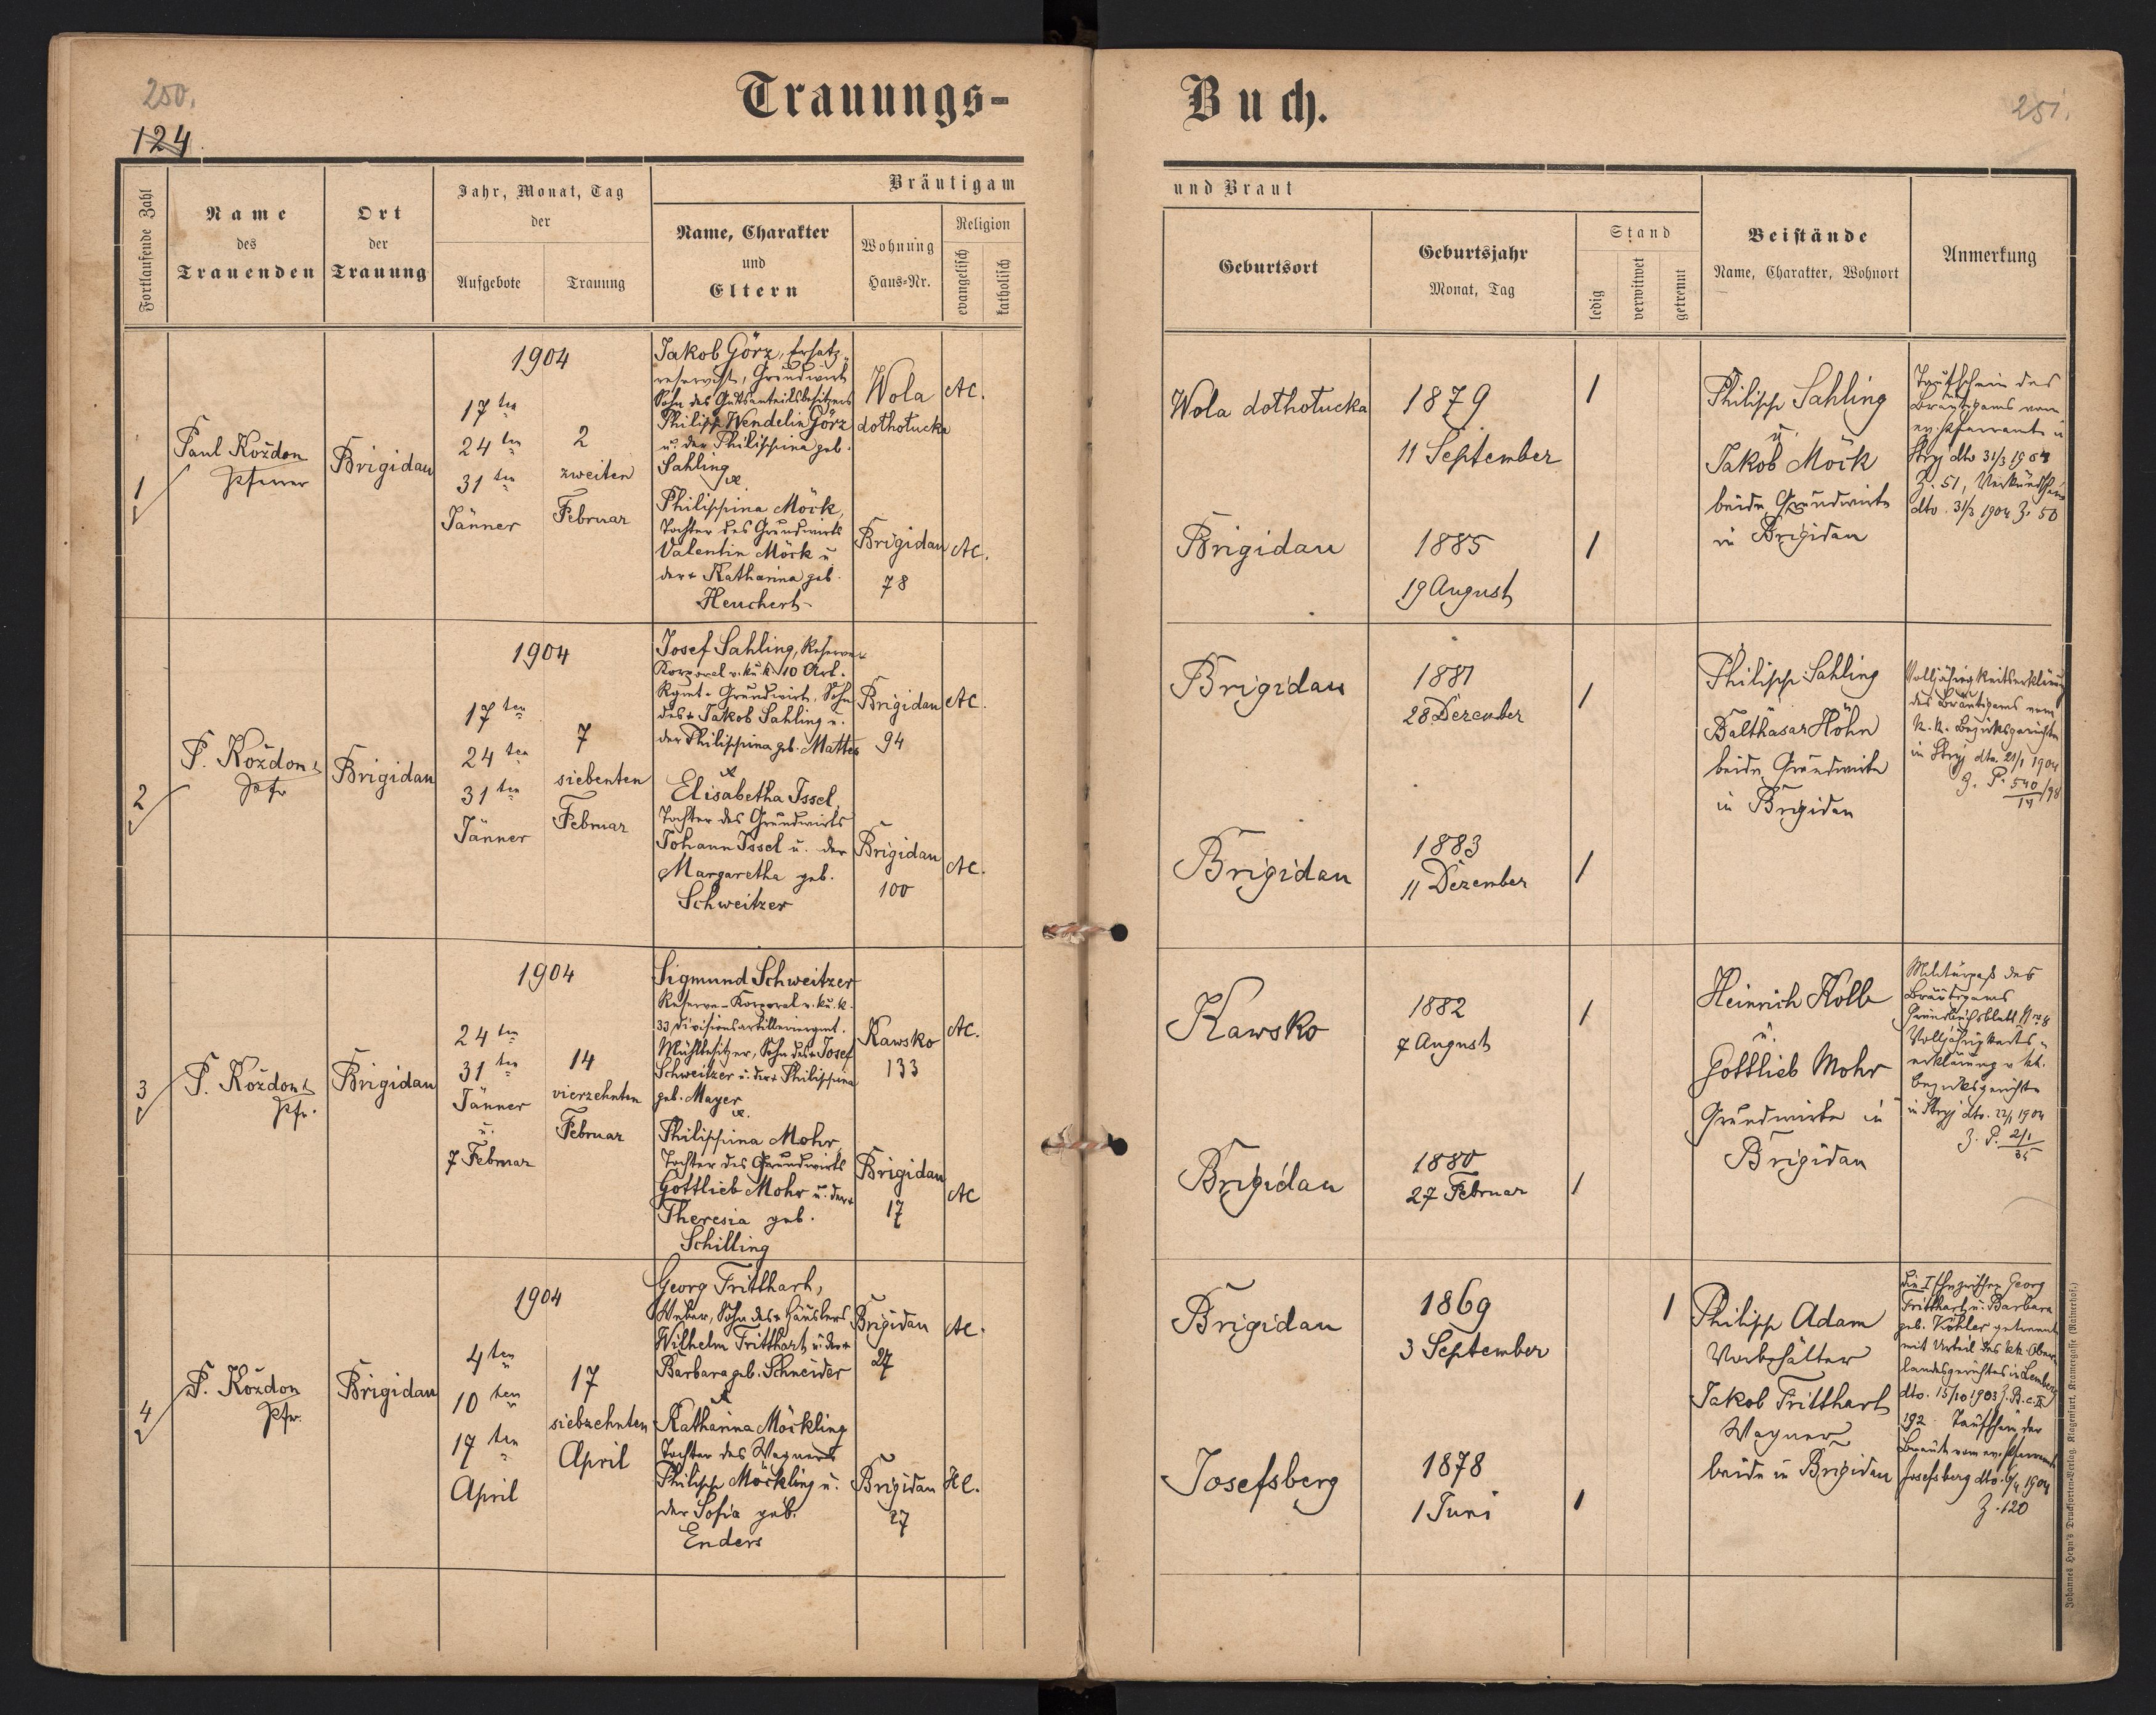 250.
124.
Trauungs-
Buch.
251.
Fortlaufende Zahl
Name
des
Trauenden
Ort
der
Trauung
Jahr, Monat, Tag
der
Aufgebote
Trauung
Bräutigam
Name, Charakter
und
Eltern
Wohnung
Haus-Nr.
Religion
evangelisch
katholisch
und Braut
Geburtsort
Geburtsjahr
Monat, Tag
Stand
ledig
verwitwet
getrennt
Beistände
Name, Charakter, Wohnort
Anmerkung
1
Paul Kożdon
Pfarrer
Brigidau
1904
17ten
24ten
31ten
Jänner
2
zweiten
Februar
Jakob Görz, Ersatz-
reservist, Grundwirt
Sohn des Gutsanteilsbesitzers
Philipp Wendelin Görz
u. der Philippina geb.
Sahling
&
Philippina Möck,
Tochter des Grundwirts
Valentin Möck u
der + Katharina geb.
Heuchert
Wola
dothołucka
AC.
Brigidau
78
AC.
Wola dothołucka
1879
11 September
1
Brigidau
1885
19 August
1
Philipp Sahling
u.
Jakob Möck
beide Grundwirte
in Brigidau
Taufschein des
Bräutigams vom
ev. Pfarramte in
Stryj dto 31/3 1904
Z. 51, Verkündschein
dto. 31/3 1904 Z. 50
2
P. Kożdon
Pfr
Brigidau
1904
17ten
24ten
31ten
Jänner
7
siebenten
Februar
Josef Sahling, Reserve-
Korporal v. k.u.k. 10 Art.
Rgmt - Grundwirt, Sohn
des + Jakob Sahling u.
der Philippina geb. Mattes
&
Elisabetha Issel,
Tochter des Grundwirts
Johann Issel u. der
Margaretha geb.
Schweitzer
Brigidau
94
AC.
Brigidau
100
AC.
Brigidau
1881
28 Dezember
1
Brigidau
1883
11 Dezember
1
Philipp Sahling
u
Balthasar Höhn
beide Grundwirte
in Brigidau
Volljährigkeitserklärung
des Bräutigams vom
k.k. Bezirksgerichte
in Stryj dto. 21/1 1904
Z. P. 540/14 /98
3
P. Kożdon
Pfr.
Brigidau
1904
24ten
31ten
Jänner
u.
7 Februar
14
vierzehnten
Februar
Sigmund Schweitzer
Reserve-Korporal v. k.u.k.
33 Divisionsartillerieregmt.
Mühlbesitzer, Sohn des + Josef
Schweitzer u. der + Philippina
geb. Mayer
&.
Philippina Mohr,
Tochter des Grundwirts
Gottlieb Mohr u. der +
Theresia geb.
Schilling
Kawsko
133
AC.
Brigidau
17
AC
Kawsko
1882
7 August
1
Brigidau
1880
27 Februar
1
Heinrich Kolb
u.
Gottlieb Mohr
Grundwirte in
Brigidau
Militärpaß des
Bräutigams
Grundbuchsblatt
Volljährigkeits-
erklärung v. kk.
Bezirksgerichte
in Stryj dto. 22/1 1904
Z. P. 2/1
35
4
P. Kożdon
Pfr.
Brigidau
1904
4ten
10ten
17ten
April
17
siebzehnten
April
Georg Tritthart,
Weber, Sohn des + Häuslers
Wilhelm Tritthart u. der +
Barbara geb. Schneider
&
Katharina Möckling
Tochter des Wagners
Philipp Möckling u.
der Sofia geb.
Enders
Brigidau
27
AC.
Brigidau
27
HC.
Brigidau
1869
3 September
1
Josefsberg
1878
1 Juni
1
Philipp Adam
Vorbehälter
Jakob Tritthart
Wagner
beide in Brigidau
Die I Ehe zwischen Georg
Tritthart u. Barbara
geb. Köhler getrennt
mit Urteil des k.k. Ober-
landesgerichtes in Lemberg
dto. 15/10 1903 Z. B. c. II
192. Taufschein der
Braut vom ev. Pfarramte
Josefsberg dto. 6/4 1904
Z. 120
Johannes Heyn's Drucksorten-Verlag, Klagenfurt, Kramergasse (Mainerhof.)